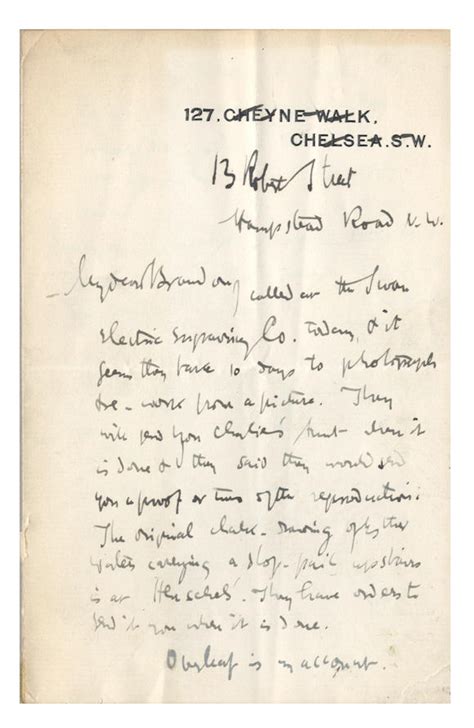 127. CHEYNE WALK.
CHELSEA. S.W.
13 Robert Street
Hampstead Road N.W.
My dear Brandon, I called at the Swan
Electric Engraving Co. today, & it
seems they take 10 days to photograph
& re-work from a picture. They
will send you Charlie's when it
is done & they said they would send
you a proof or two of the reproduction.
The original chalk-drawing of
carrying a slop-pail upstairs
is at Henschel's. They have orders to
send it you when it is done.
Overleaf is my account.